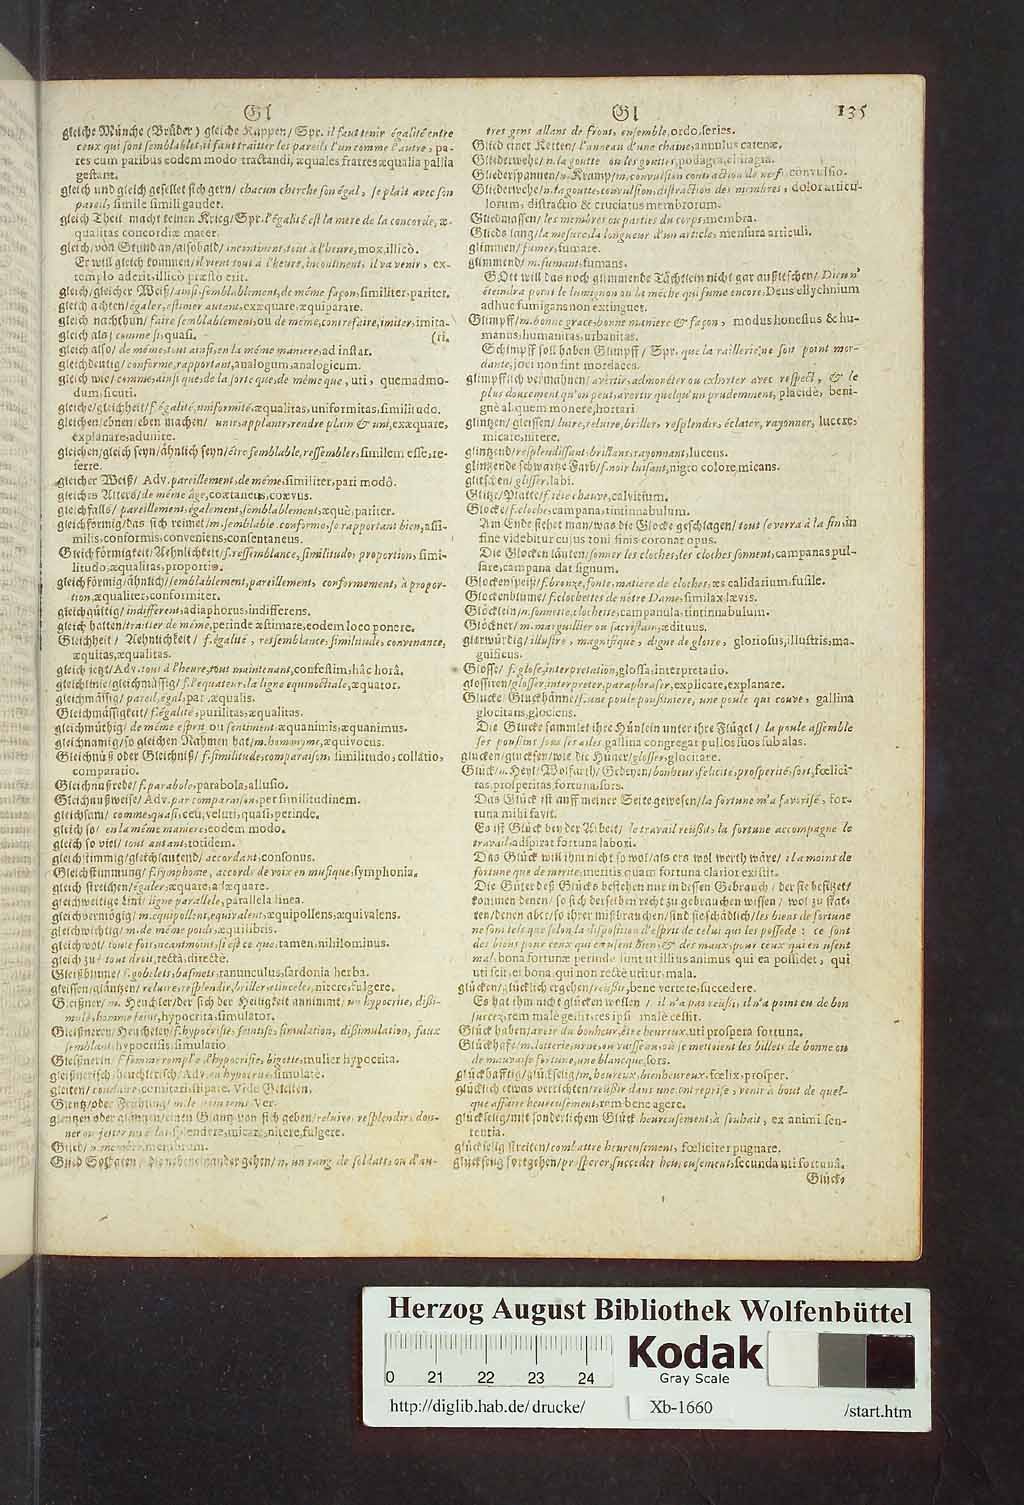 Gl
gleiche Münche (Brüder) gleiche Kappen/ Spr. il faut tenir égalité entre
ceux qui sont semblables, il faut traitter les pareils l'un comme l'autre, pa-
res cum paribus eodem modo tractandi, æquales fratres æqualia pallia
gestant.
gleich und gleich gesellet sich gern/ chacun cherche son égal, se plait avec son
pareil, simile simili gaudet.
gleich Theil macht keinen Krieg/ Spr. l'égalité est la mere de la concorde, æ-
qualitas concordiæ mater.
gleich/ von Stund an/ alsobald/ incontinent, tout à l'heure, mox, illicò.
Er will gleich kommen/ il vient tout à l'heure, incontinent, il va venir, ex-
templo aderit, illicò præsto erit.
gleich/ gleicher Weiß/ ainsi, semblablement, de même façon, similiter, pariter.
gleich achten/ égaler, estimer autant, exæquare, æquiparare.
gleich nachthun/ faire semblablement, ou de même, contrefaire, imiter, imita-
gleich als/ comme si, quasi. (ri.
gleich also/ de même, tout ainsi, en la même maniere, ad instar.
gleichdeutig/ conforme, rapportant, analogum, analogicum.
gleich wie/ comme, ainsi que, de la sorte que, de même que, uti, quemadmo-
dum, sicuti.
gleiche/ gleichheit/ f. égalité, uniformité, æqualitas, uniformitas, similitudo.
gleichen/ ebnen/ eben machen/ unir, applanir, rendre plain & uni, exæquare,
explanare, adunire.
gleichen/ gleich seyn/ ähnlich seyn/ être semblable, ressembler, similem esse, re-
ferre.
gleicher Weiß/ Adv. pareillement, de même, similiter, pari modô.
gleiches Alters/ de même âge, coætaneus, coævus.
gleichfalls/ pareillement, également, semblablement, æquè, pariter.
gleichförmig/ das sich reimet/ m. semblable. conforme, se rapportant bien, assi-
milis, conformis, conveniens, consentaneus.
Gleichförmigkeit/ Aehnlichkeit/ f. ressemblance, similitude, proportion, simi-
litudo, æqualitas, proportio.
gleichförmig/ ähnlich/ semblablement, pareillement, conformement, à propor-
tion, æqualiter, conformiter.
gleichgültig/ indifferent, adiaphorus, indifferens.
gleich halten/ traitter de même, perinde æstimare, eodem loco ponere.
Gleichheit/ Aehnlichkeit/ f. égalité, ressemblance, similitude, convenance,
æquitas, æqualitas.
gleich jetzt/ Adv. tout à l'heure, tout maintenant, confestim, hâc horâ.
gleichlinie/ gleichmässig/ f. l'equateur, la ligne equinoctiale, æquator.
gleichmässig/ pareil, égal, par æqualis.
Gleichmässigkeit/ f. égalité, parilitas, æqualitas.
gleichmüthig/ de même esprit ou sentiment, æquanimis, æquanimus.
gleichnamig/ so gleichen Nahmen hat/ m. homonyme, æquivocus.
Gleichnuß oder Gleichniß/ f. similitude, comparaison, similitudo, collatio,
comparatio.
Gleichnußrede/ f. parabole, parabola, allusio.
Gleichnußweise/ Adv. par comparaison, per similitudinem.
gleichsam/ comme, quasi, ceu, veluti, quasi, perinde.
gleich so/ en la même maniere, eodem modo.
gleich so viel/ tout autant, totidem.
gleichstimmig/ gleichlautend/ accordant, consonus.
Gleichstimmung/ f. symphonie, accords de voix en musique, symphonia.
gleich streichen/ égaler, æquare, adæquare.
gleichweitige Lini/ ligne parallele, parallela linea.
gleichvermögig/ m. equipollent, equivalent, æquipollens, æquivalens.
gleichwichtig/ m. de même poids, æquilibris.
gleichwol/ toute fois, neantmoins, si est ce que, tamen, nihilominus.
gleich zu/ tout droit, rectà, directè.
Gleißblume/ f. gobelets, bassinets, ranunculus, sardonia herba.
gleissen/ gläntzen/ reluire, resplendir, briller, étinceler, nitere, fulgere.
Gleißner/ m. Heuchler/ der sich der Heiligkeit annimmt/ un hypocrite, dissi-
mulé, homme feint, hypocrita, simulator.
Gleißnerey/ Heucheley/ f. hypocrisie, feintise, simulation, dissimulation, faux
semblant, hypocrisis, simulatio.
Gleißnerin/ f. femme remplie d'hypocrisie, bigotte, mulier hypocrita.
gleißnerisch/ heuchlerisch/ Adv. en hypocrite, simulatè.
gleiten/ conduire, comitari, stipare. Vide Geleiten.
Glentz/ oder Frühling/ m. le printems, Ver.
glentzen oder gläntzen/ einen Glantz von sich geben/ reluire, resplendir, don-
ner ou jetter une lueur, splendere, micare, nitere, fulgere.
Glied/ n. membre, membrum.
Glied Soldaten/ die neben einander gehen/ n. un rang de soldats, ou d'au-
Gl 135
tres gens allans de front, ensemble, ordo, series.
Glied einer Ketten/ l'anneau d'une chaine, annulus catenæ.
Gliederwehe/ n. la goutte ou les gouttes, podagra, chiragra.
Gliederspannen/ n. Kramp/ m. convulsion contraction de nerf, convulsio.
Gliederwehe/ n. la goutte, convulsion, distraction des membres, dolor articu-
lorum, distractio & cruciatus membrorum.
Gliedmassen/ les membres ou parties du corps, membra.
Glieds lang/ la mesure, la longueur d'un article, mensura articuli.
glimmen/ fumer, fumare.
glimmend/ m. fumant, fumans.
GOtt will das noch glimmende Tächtlein nicht gar außleschen/ Dieu n'
éteindra point le lumignon ou la mêche qui fume encore, Deus ellychnium
adhuc fumigans non extinguet.
Glimpff/ m. bonne grace, bonne maniere & façon, modus honestus & hu-
manus, humanitas, urbanitas.
Schimpff soll haben Glimpff/ Spr. que la raillerie ne soit point mor-
dante, joci non sint mordaces.
glimpfflich vermahnen/ avertir, admonéter ou exhorter avec respect, & le
plus doucement qu'on peut, avertir quelqu'un prudemment, placidè, beni-
gnè al quem monere, hortari
glintzen/ gleissen/ luire, reluire, briller, resplendir, éclater, rayonner, lucere,
micare, nitere.
glintzend/ resplendissant, brillant, rayonnant, lucens.
glintzende schwartze Farb/ f. noir luisant, nigro colore micans.
glitschen/ glisser, labi.
Glitze/ Platte/ f. tête chauve, calvitium.
Glocke/ f. cloche, campana, tintinnabulum.
Am Ende siehet man/ was die Glocke geschlagen/ tout se verra à la fin, in
fine videbitur cujus toni finis coronat opus.
Die Glocken läuten/ sonner les cloches, les cloches sonnent, campanas pul-
sare, campana dat signum.
Glockenspeiß/ f. bronze, fonte, matiere de cloches, æs caldarium, fusile.
Glockenblume/ f. clochettes de nôtre Dame, similax lævis.
Glöcklein/ n. sonnette, clochette, campanula, tintinnabulum.
Glöckner/ m. marguillier ou sacristain, ædituus.
glorwürdig/ illustre, magnifique, digne de gloire, gloriosus, illustris, ma-
gnificus.
Glosse/ f. glose, interpretation, glossa, interpretatio.
glossiren/ gloser, interpreter, paraphraser, explicare, explanare.
Glucke/ Gluckhänne/ f. une poule poussiniere, une poule qui couve, gallina
glocitans, glociens.
Die Glucke sammlet ihre Hünlein unter ihre Flügel/ la poule assemble
ses poussins sous ses ailes, gallina congregat pullos suos sub alas.
glucken/ glucksen/ wie die Hüner/ glosser, glocitare.
Glück/ n. Heyl/ Wolfarth/ Gedeyen/ bonheur, felicité, prosperité, sort, fœlici-
tas, prosperitas, fortuna, sors.
Das Glück ist auff meiner Seite gewesen/ la fortune m'a favorisé, for-
tuna mihi favit.
Es ist Glück bey der Arbeit/ le travail reüssit, la fortune accompagne le
travail, adspirat fortuna labori.
Das Glück will ihm nicht so wol/ als ers wol werth wäre/ il a moins de
fortune que de merite, meritis quam fortuna clarior existit.
Die Güter deß Glücks bestehen nur in dessen Gebrauch/ der sie besitzet/
kommen denen/ so sich derselben recht zu gebrauchen wissen/ wol zu stat-
ten/ denen aber/ so ihrer mißbrauchen/ sind sie schädlich/ les biens de fortune
ne sont tels que selon la disposition d'esprit de celui qui les possede: ce sont
des biens pour ceux qui en usent bien, & des maux, pour ceux qui en usent
mal, bona fortunæ perinde sunt ut illius animus qui ea possidet, qui
uti scit, ei bona, qui non rectè utitur, mala.
glücken/ glücklich ergehen/ reüssir, bene vertere, succedere.
Es hat ihm nicht glücken wollen/ il n'a pas reüssi, il n'a point eu de bon
succez, rem malè gessit, res ipsi malè cessit.
Glück haben/ avoir du bonheur, être heureux, uti prospera fortuna.
Glückhafe/ m. lotterie, urne, ou vaisseau, où se mettoient les billets de bonne ou
de mauvaise fortune, une blancque, sors.
glückhafftig/ glückselig/ m. heureux, bienheureux. fœlix, prosper.
glücklich etwas verrichten/ reüssir dans une entreprise, venir à bout de quel-
que affaire heureusement, rem bene agere.
glückselig/ mit sonderlichem Glück/ heureusement, à souhait, ex animi sen-
tentia.
glückselig streiten/ combattre heureusement, fœliciter pugnare.
glückselig fortgehen/ prosperer, succeder heureusement, secunda uti fortunâ.
Glücks
Herzog August Bibliothek Wolfenbüttel
0 21 22 23 24
Kodak
Gray Scale
http://diglib.hab.de/ drucke/ Xb-1660 /start.htm